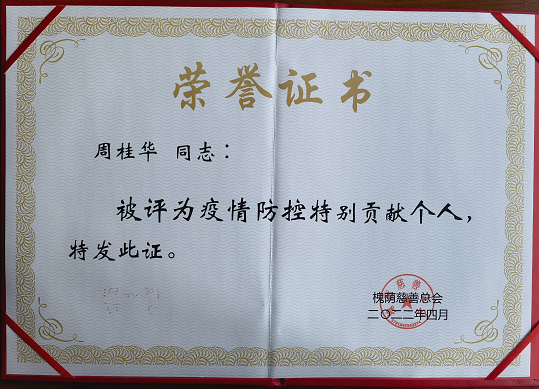 荣誉证书
周桂华 同志：
被评为疫情防控特别贡献个人，
特发此证。
槐荫慈善总会
二〇二二年四月